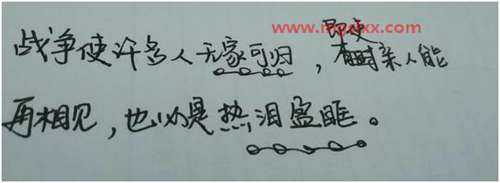 战争使许多人无家可归，即使亲人能
再相见，也必是热泪盈眶。